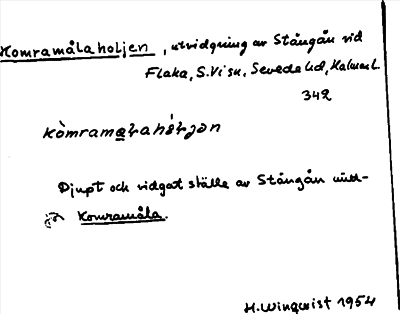 Komramålaholjen, utvidgning av Stångån vid
Flaka, S.Vi sn, Sevede hd, Kalmar l.
342
kòmramaɽahɵ́ɽjən
Djupt och vidgat ställe av Stångån
Komramåla.
H. Winqvist 1954